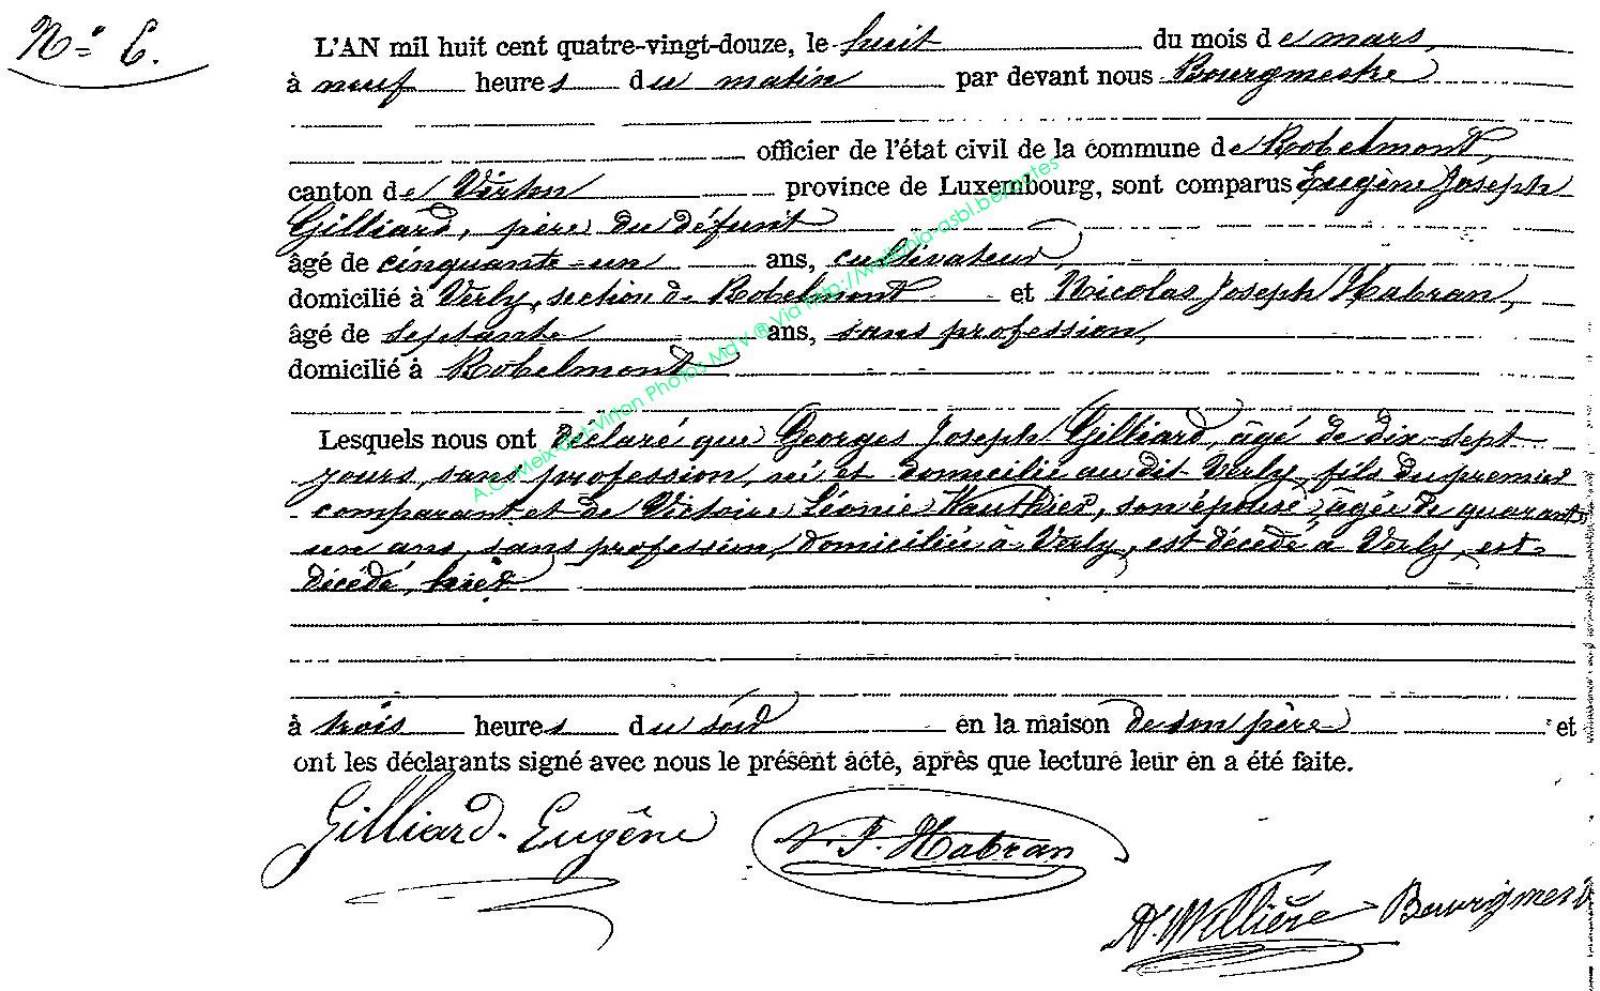 N° 6.
L'AN mil huit cent quatre-vingt-douze, le huit du mois de mars,
à neuf heures du matin par devant nous Bourgmestre
officier de l'état civil de la commune de Robelmont,
canton de Virton province de Luxembourg, sont comparus Eugène Joseph
Gilliard, père du défunt
âgé de cinquante-un ans, cultivateur,
domicilié à Verly, section de Robelmont et Nicolas Joseph Habran,
âgé de septante ans, sans profession,
domicilié à Robelmont
Lesquels nous ont déclaré que Georges Joseph Gilliard, âgé de dix-sept
jours, sans profession, né et domicilié au dit Verly, fils du premier
comparant et de Victoire Léonie Wauthier, son épouse, âgée de quarante
un ans, sans profession, domiciliée à Verly, est décédé à Verly, est
décédé, hier
à trois heures du soir en la maison de son père et
ont les déclarants signé avec nous le présent acte, après que lecture leur en a été faite.
Gilliard Eugène N. J. Habran
Willière Bourgmest
A.C. Meix-dvt-Virton Photos MdV ® Via http://wallonia-asbl.be/